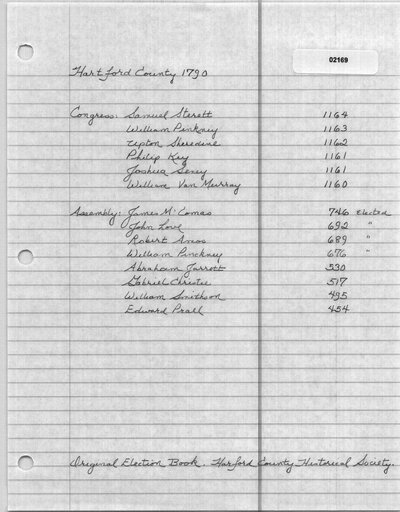 02169
Hartford County 1790
Congress: Samuel Sterett 1164
William Pinkney 1163
Upton Sheredine 1162
Philip Key 1161
Joshua Seney 1161
William Van Murray 1160
Assembly: James McComas 746 Elected
John Love 692 "
Robert Amos 689 "
William Pinckney 676 "
Abraham Jarrott 530
Gabriel Christie 517
William Smithson 495
Edward Prall 454
Original Election Book. Harford County Historical Society.